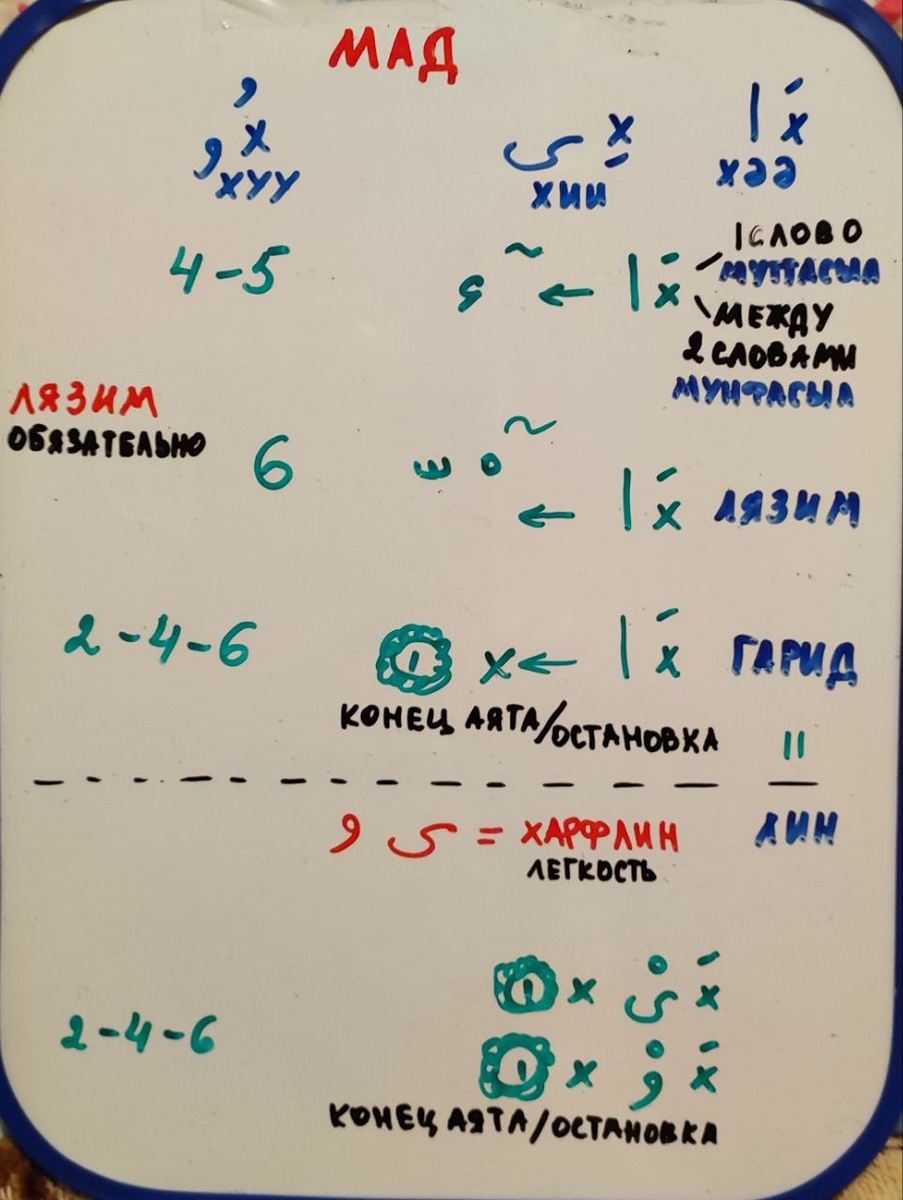 МАД
ُ х و    х ِ ى    َ х ا
ХУУ    ХИИ    ХӘӘ
4-5    ء ~ ← ا َ х    1 СЛОВО
МУТТАСЫЛ
МЕЖДУ
2 СЛОВАМИ
МУНФАСЫЛ
ЛЯЗИМ
ОБЯЗАТЕЛЬНО
6    ّ ْ ~ ← ا َ х    ЛЯЗИМ
2-4-6    1 х ← ا َ х    ГАРИД
КОНЕЦ АЯТА/ОСТАНОВКА    ॥
و ى = ХАРФЛИН    ЛИН
ЛЕГКОСТЬ
1 х ىْ َ х
2-4-6    1 х وْ َ х
КОНЕЦ АЯТА/ОСТАНОВКА